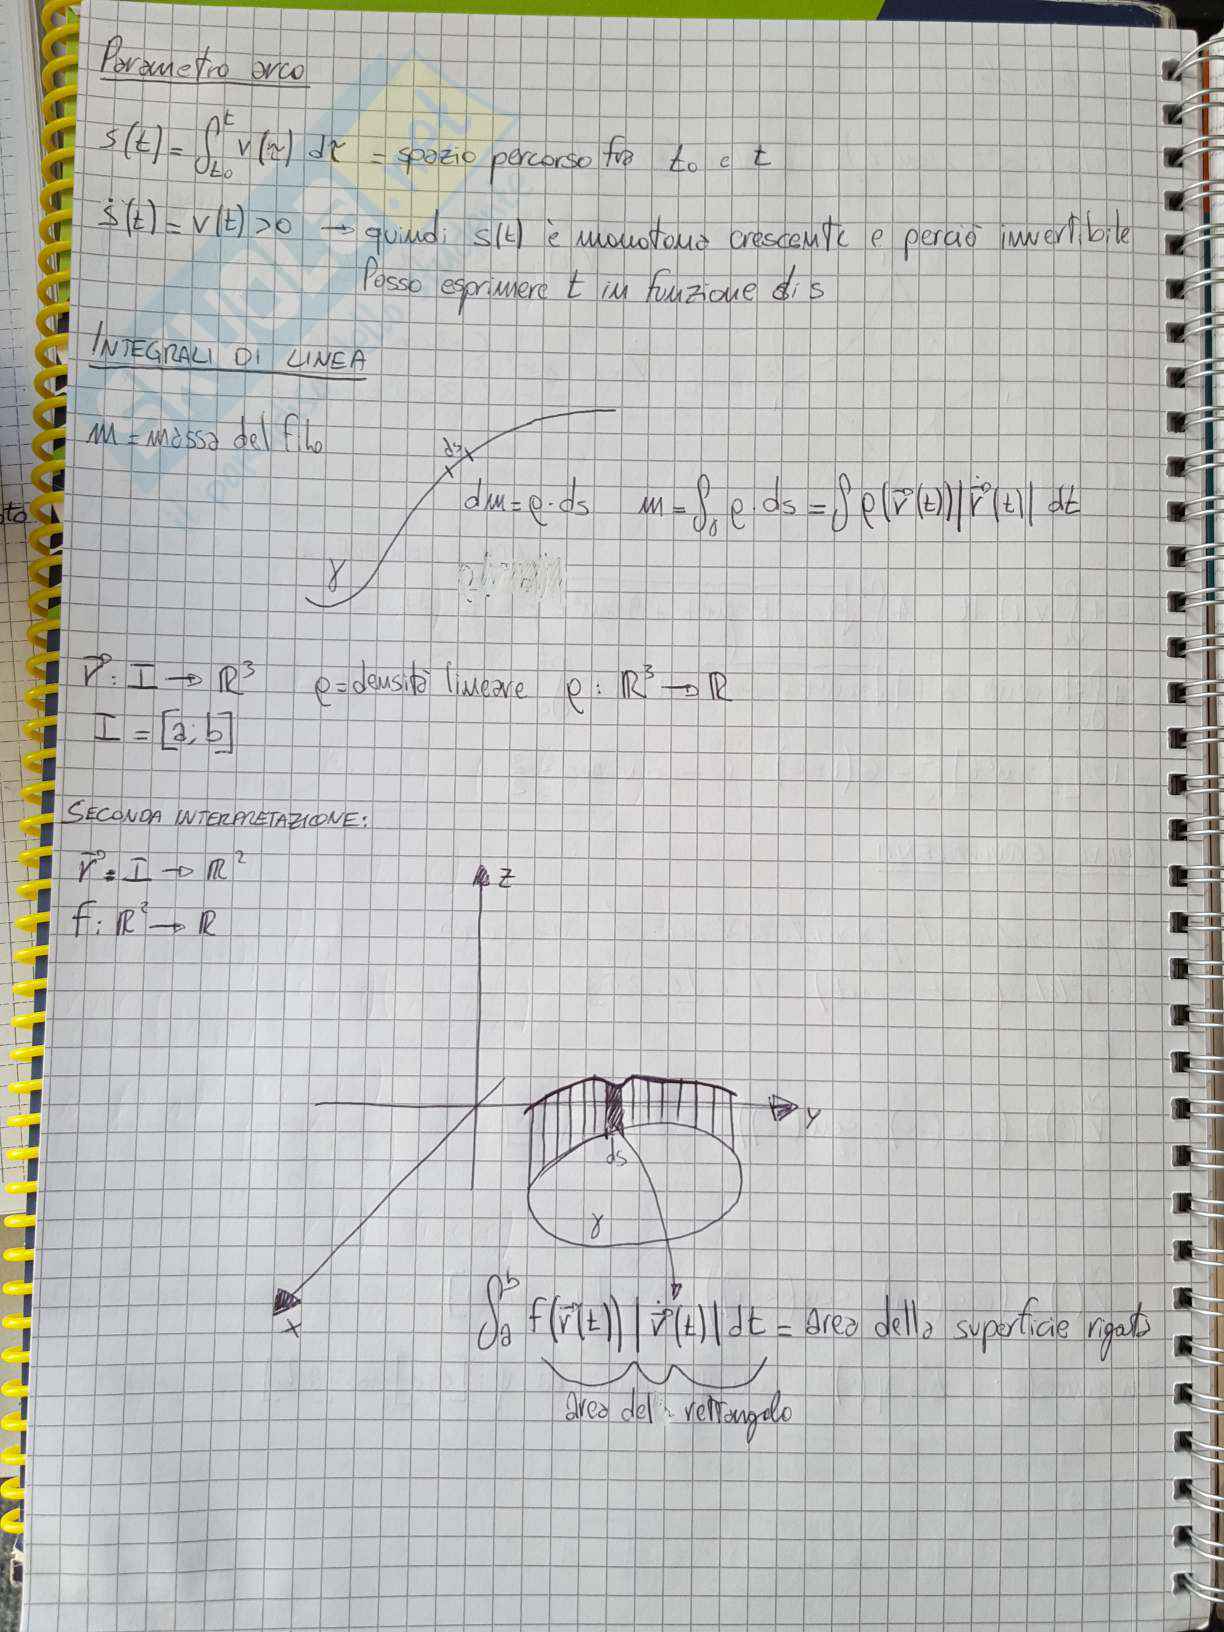 Parametro arco
s(t) = ∫_{t₀}^{t} v(τ) dτ = spazio percorso fra t₀ e t
ṡ(t) = v(t) > 0 → quindi s(t) è monotona crescente e perciò invertibile
Posso esprimere t in funzione di s
INTEGRALI DI LINEA
m = massa del filo
ds
dm = ρ · ds m = ∫_γ ρ · ds = ∫ ρ(r⃗(t)) |ṙ⃗(t)| dt
γ
r⃗ : I → ℝ³ ρ = densità lineare ρ : ℝ³ → ℝ
I = [a; b]
SECONDA INTERPRETAZIONE:
r⃗ : I → ℝ²
z
f : ℝ² → ℝ
y
ds
γ
x
∫_a^b f(r⃗(t)) |ṙ⃗(t)| dt = area della superficie rigata
area del rettangolo
SKUOLA.net